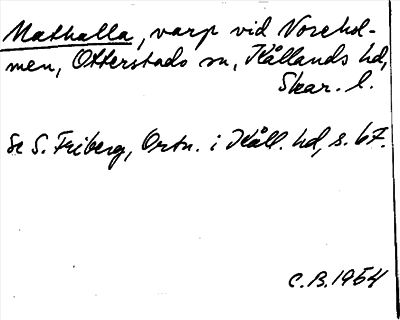 Mathalla, varp vid Norehol-
men, Otterstads sn, Kållands hd,
Skar. l.
Se S. Friberg, Ortn. i Kåll. hd, s. 67.
C.B. 1954